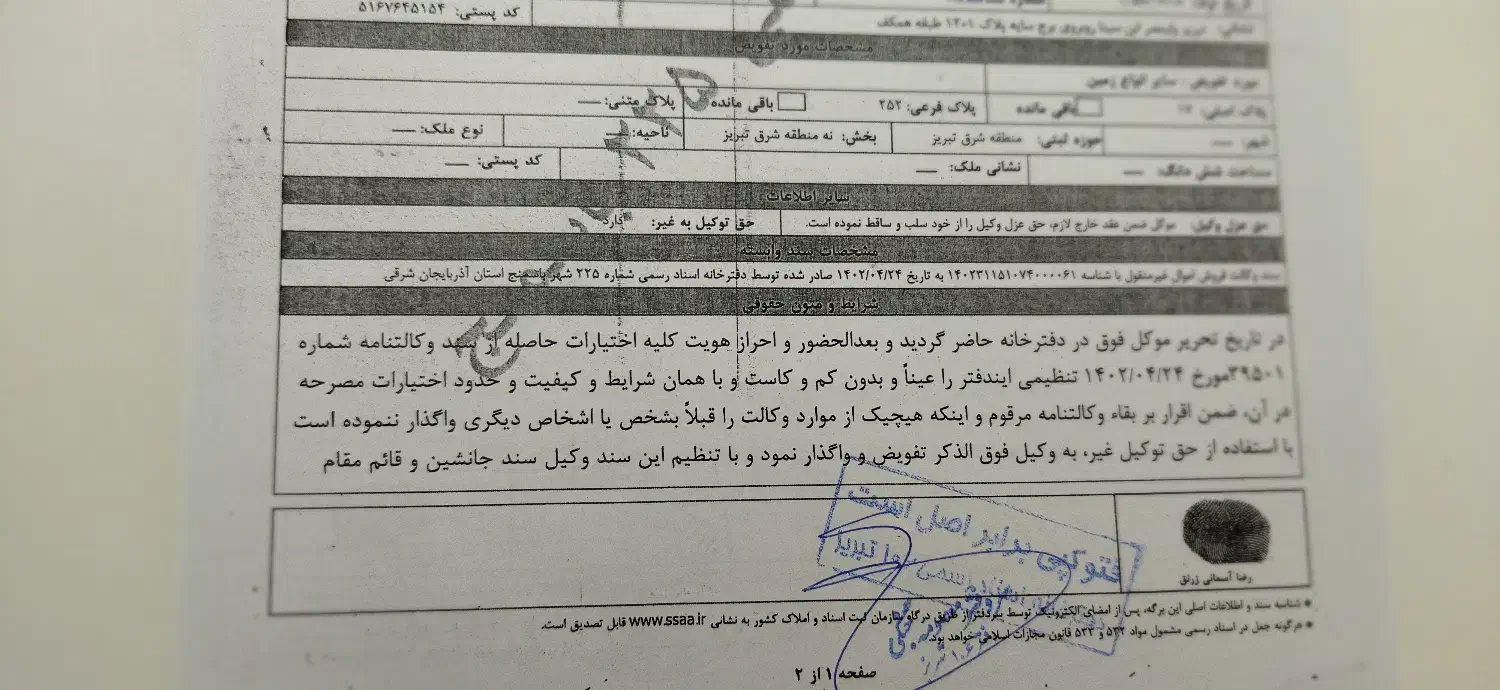 کد پستی: ۵۱۶۷۶۴۵۱۵۴
نشانی: تبریز ولیعصر ابن سینا روبروی برج سایه پلاک ۱۳۰۱ طبقه همکف
مشخصات مورد تفویض
مورد تفویض: سایر انواع زمین
پلاک اصلی: باقی مانده پلاک فرعی: ۲۵۲ باقی مانده پلاک متنی: —
شهر: — حوزه ثبتی: منطقه شرق تبریز بخش: نه منطقه شرق تبریز ناحیه: — نوع ملک: —
مساحت شش دانگ: — نشانی ملک: — کد پستی: —
سایر اطلاعات
حق عزل وکیل: موکل ضمن عقد خارج لازم، حق عزل وکیل را از خود سلب و ساقط نموده است. حق توکیل به غیر: دارد
مشخصات سند وابسته
سند وکالت فروش اموال غیرمنقول با شناسه ۱۴۰۲۳۱۱۵۱۰۷۴۰۰۰۰۶۱ به تاریخ ۱۴۰۲/۰۴/۲۴ صادر شده توسط دفترخانه اسناد رسمی شماره ۲۲۵ شهر باسمنج استان آذربایجان شرقی
شرایط و متون حقوقی
در تاریخ تحریر موکل فوق در دفترخانه حاضر گردید و بعدالحضور و احراز هویت کلیه اختیارات حاصله از سند وکالتنامه شماره
۳۹۵۰۱مورخ ۱۴۰۲/۰۴/۲۴ تنظیمی ایندفتر را عیناً و بدون کم و کاست و با همان شرایط و کیفیت و حدود اختیارات مصرحه
در آن، ضمن اقرار بر بقاء وکالتنامه مرقوم و اینکه هیچیک از موارد وکالت را قبلاً بشخص یا اشخاص دیگری واگذار ننموده است
با استفاده از حق توکیل غیر، به وکیل فوق الذکر تفویض و واگذار نمود و با تنظیم این سند وکیل سند جانشین و قائم مقام
فتوکپی برابر اصل است
رضا آسمانی زرنق
* شناسه سند و اطلاعات اصلی این برگه، پس از امضای الکترونیک توسط سردفتر از طریق درگاه سازمان ثبت اسناد و املاک کشور به نشانی www.ssaa.ir قابل تصدیق است.
* هرگونه جعل در اسناد رسمی مشمول مواد ۵۳۲ و ۵۳۳ قانون مجازات اسلامی خواهد بود.
صفحه ۱ از ۲